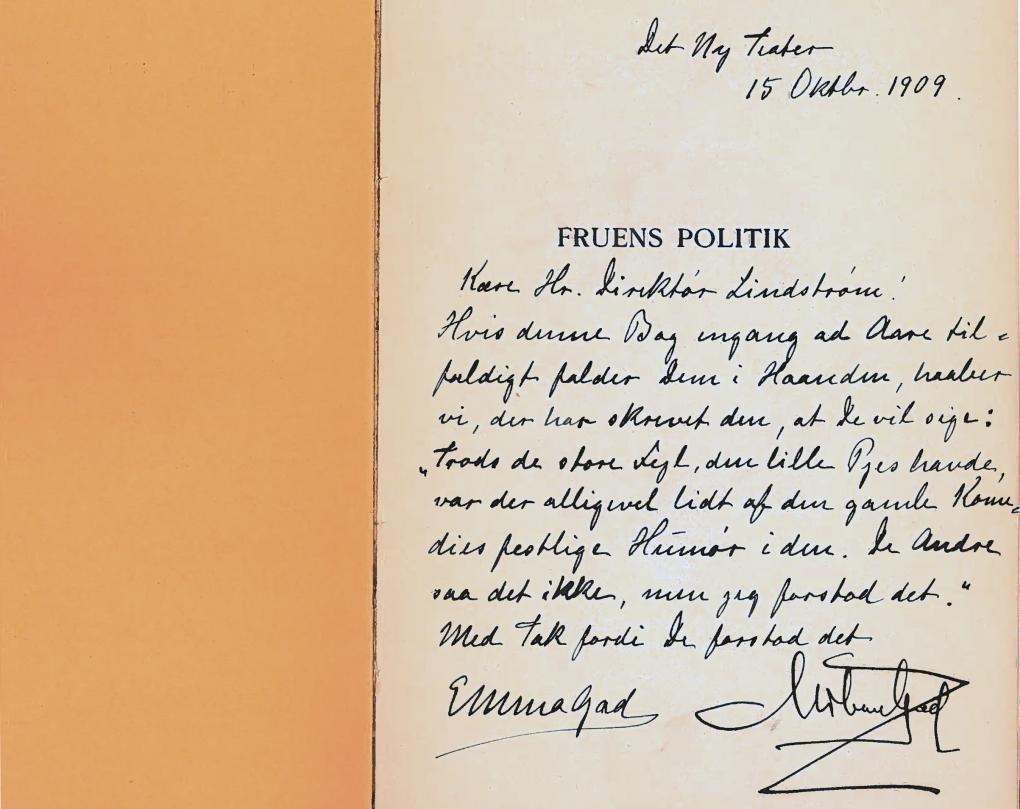 Det Ny Teater
15 Oktbr. 1909.
FRUENS POLITIK
Kære Hr. Direktör Lindstrøm!
Hvis denne Bog engang ad Aare til=
fældigt falder Dem i Haanden, haaber
vi, der har skrevet den, at De vil sige:
„Trods de store Fejl, den lille Pjes havde,
var der alligevel lidt af den gamle Kome=
dies festlige Humør i den. De Andre
saa det ikke, men jeg forstod det.“
Med Tak fordi De forstod det
Emma Gad
Urban Gad